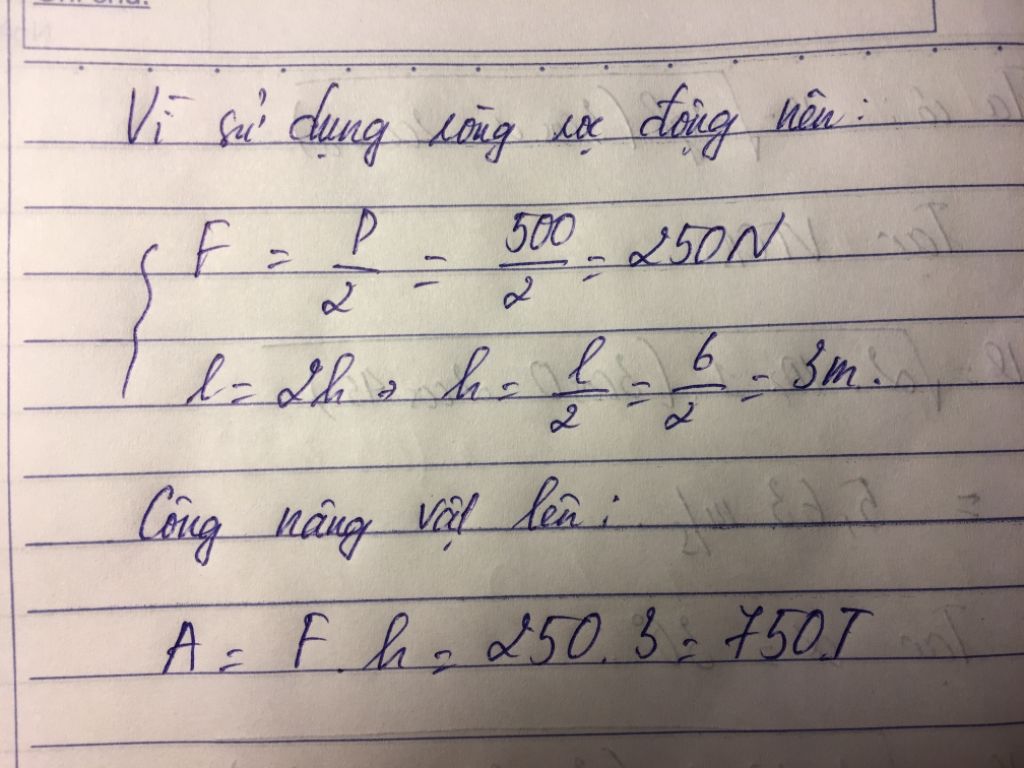 Vì sử dụng ròng rọc động nên:
F = P/2 = 500/2 = 250N
l = 2h → h = l/2 = 6/2 = 3m.
Công nâng vật lên:
A = F.h = 250.3 = 750J